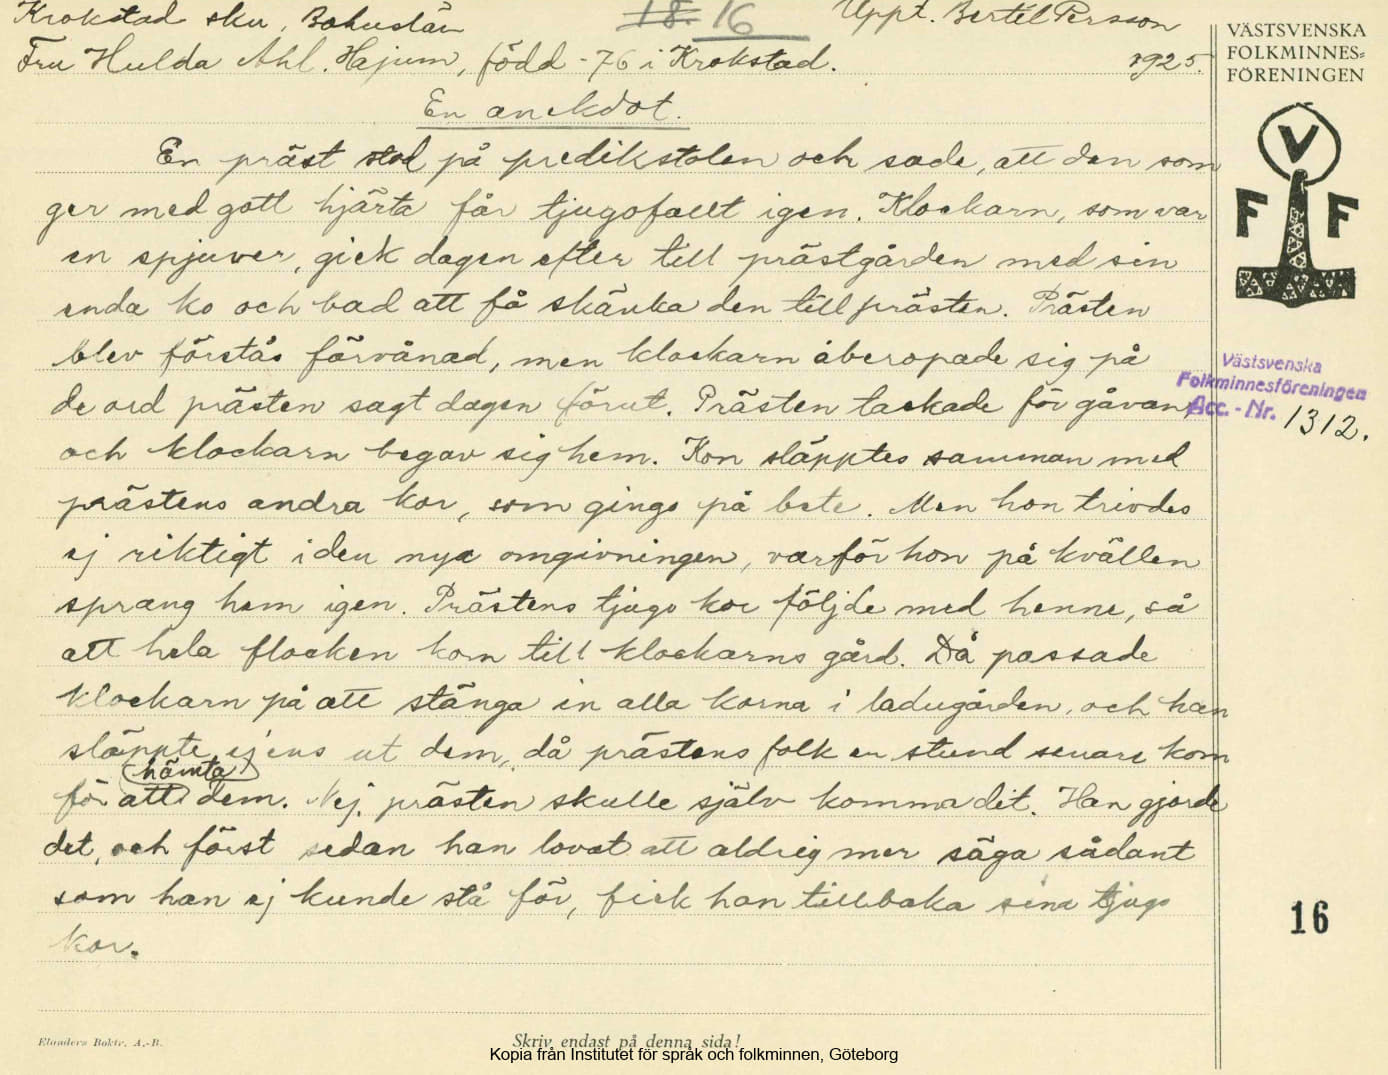 Krokstad sku, Bohuslän
18. 16
Uppt. Bertil Persson
Fru Hulda Ahl. Hajum, född -76 i Krokstad.
1925.
En anekdot.
En präst stod på predikstolen och sade, att den som
ger med gott hjärta får tjugofallt igen. Klockarn, som var
en spjuver, gick dagen efter till prästgården med sin
enda ko och bad att få skänka den till prästen. Prästen
blev förstås förvånad, men klockarn åberopade sig på
de ord prästen sagt dagen förut. Prästen tackade för gåvan,
och klockarn begav sig hem. Kon släpptes samman med
prästens andra kor, som gingo på bete. Men hon trivdes
ej riktigt i den nya omgivningen, varför hon på kvällen
sprang hem igen. Prästens tjugo kor följde med henne, så
att hela flocken kom till klockarns gård. Då passade
klockarn på att stänga in alla korna i ladugården, och han
släppte ej ens ut dem, då prästens folk en stund senare kom
hämta
för att dem. Nej, prästen skulle själv komma dit. Han gjorde
det, och först sedan han lovat att aldrig mer säga sådant
som han ej kunde stå för, fick han tillbaka sina tjugo
kor.
VÄSTSVENSKA
FOLKMINNES-
FÖRENINGEN
V
F F
Västsvenska
Folkminnesföreningen
Acc. - Nr. 1312.
16
Elanders Boktr. A.-B.
Skriv endast på denna sida!
Kopia från Institutet för språk och folkminnen, Göteborg